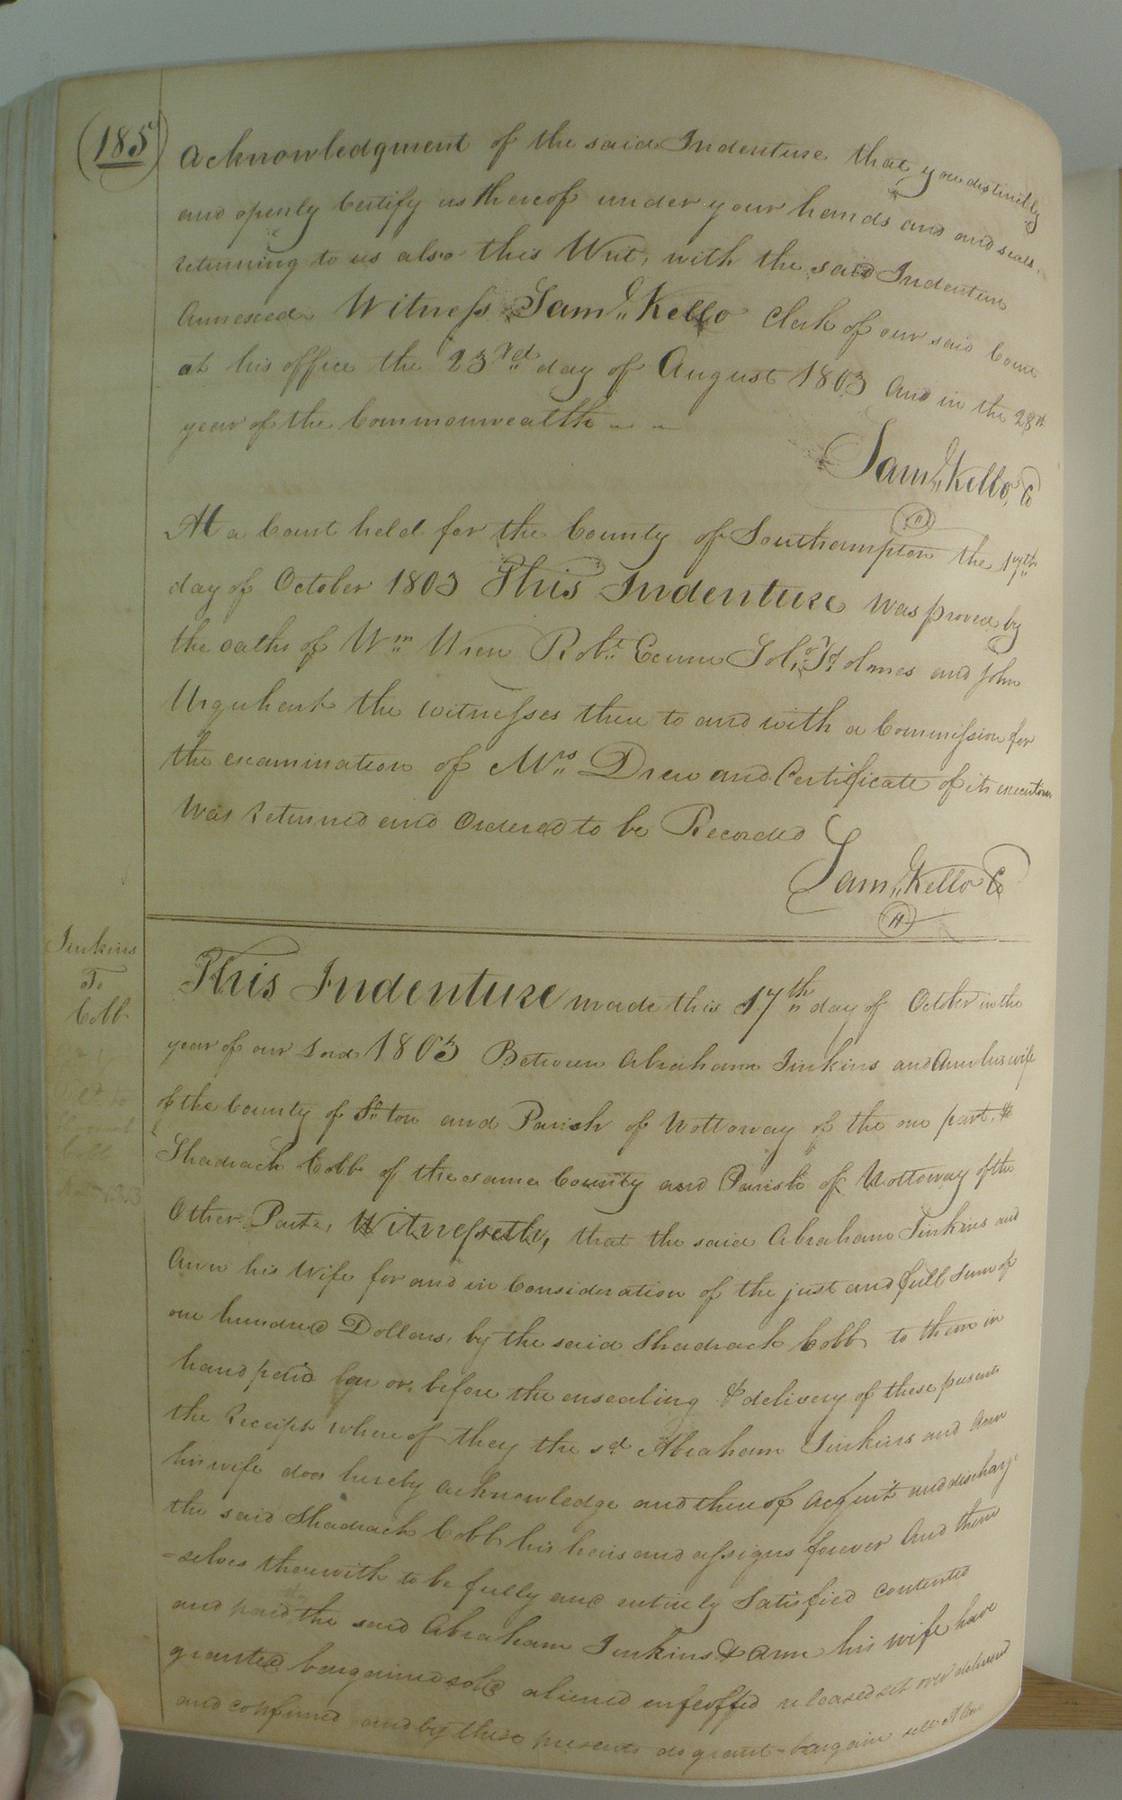 (185)
Acknowledgment of the said Indenture that you distinctly
and openly Certify us thereof under your hands and and seals,
returning to us also this Writ, with the said Indenture
Annexed Witness Saml. Kello Clerk of our said Court
at his office the 23rd day of August 1803 And in the 28th
year of the Commonwealth
Saml. Kello, C
At a Court held for the County of Southampton the 17th
day of October 1803 This Indenture was proved by
the oaths of Wm. Uren Robt. Holmes and John
Urquhart the witnesses there to and with a Commission for
the examination of Mrs. Drew and Certificate of its execution
Was returned and Ordered to be Recorded
Saml. Kello C
Jinkins
To
Cobb
This Indenture made this 17th day of October in the
year of our Lord 1803 Between Abraham Jinkins and Ann his wife
of the County of So.ton and Parish of Nottoway of the one part, &
Shadrach Cobb of the same County and Parish of Nottoway of the
Other Part, Witnesseth, that the said Abraham Jinkins and
Ann his Wife for and in Consideration of the just and full Sum of
one hundred Dollars, by the said Shadrach Cobb to them in
hand paid by or before the ensealing & delivery of these presents
the Receipt where of they the sd. Abraham Jinkins and Ann
his wife doo hereby acknowledge and there of Acquit and discharge
the said Shadrach Cobb his heirs and assigns forever And them
=selves therewith to be fully and entirely Satisfied contented
and paid the said Abraham Jinkins & Ann his wife have
granted bargained sold aliened enfeoffed released set over delivered
and confirmed and by these presents do grant bargain sell